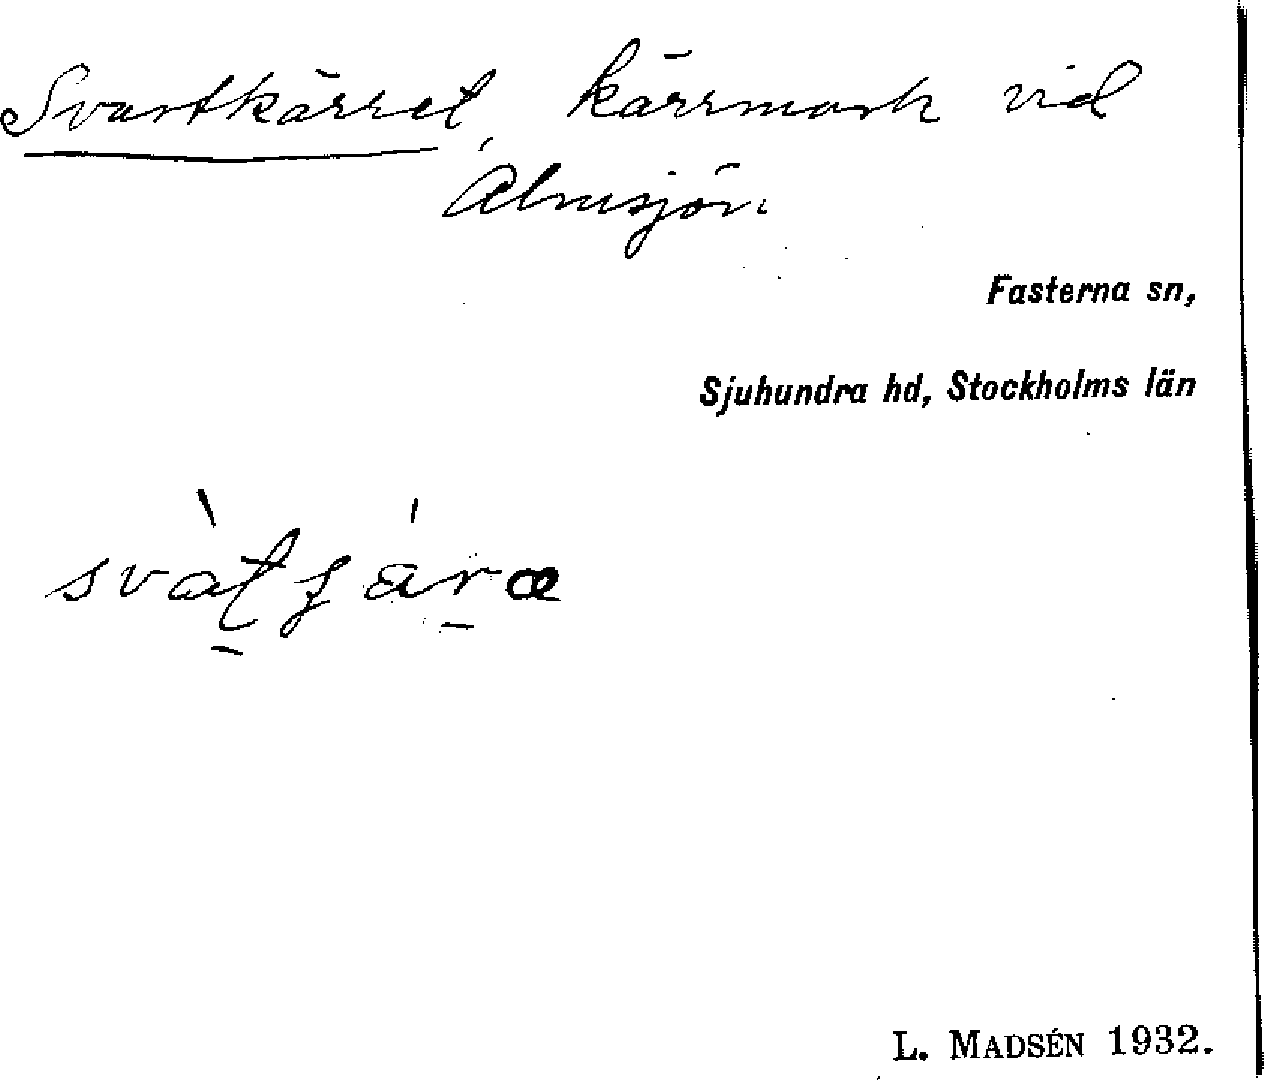 Svartkärret, kärrmark vid
Almsjön.
Fasterna sn,
Sjuhundra hd, Stockholms län
L. MADSÉN 1932.